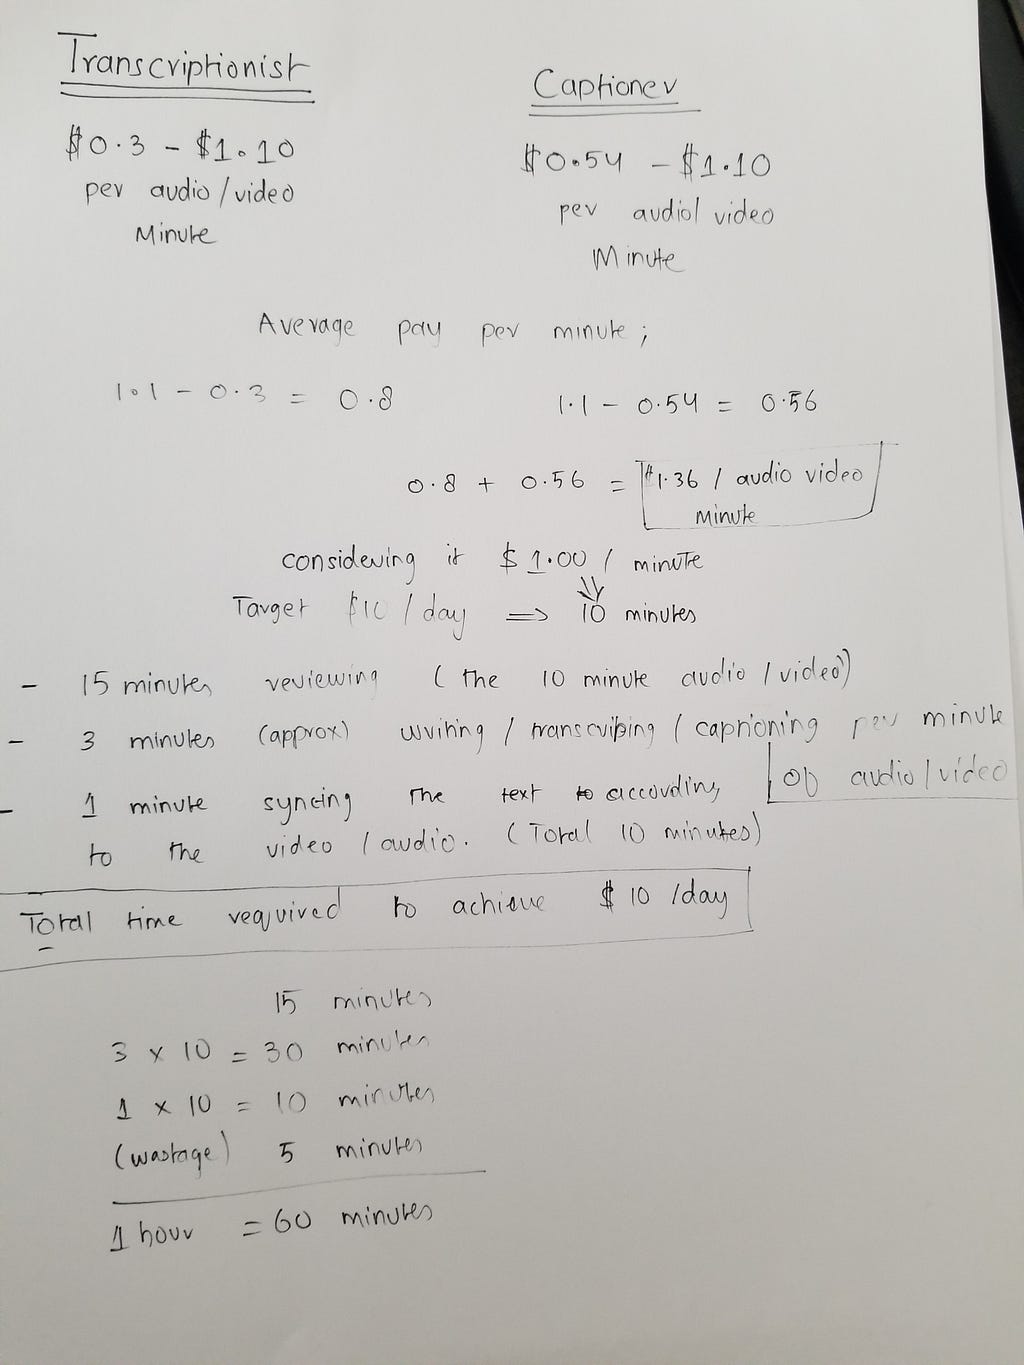 Transcriptionist
$0.3 - $1.10
per audio/video
Minute
Captioner
$0.54 - $1.10
per audio/video
Minute
Average pay per minute;
1.1 - 0.3 = 0.8
1.1 - 0.54 = 0.56
0.8 + 0.56 = $1.36 / audio video
minute
considering it $1.00 / minute
Target $10 / day => 10 minutes
- 15 minutes reviewing (the 10 minute audio/video)
- 3 minutes (approx) writing / transcribing / captioning per minute
of audio/video
- 1 minute syncing the text to according
to the video / audio. (Total 10 minutes)
Total time required to achieve $10 /day
15 minutes
3 x 10 = 30 minutes
1 x 10 = 10 minutes
(wastage) 5 minutes
1 hour = 60 minutes